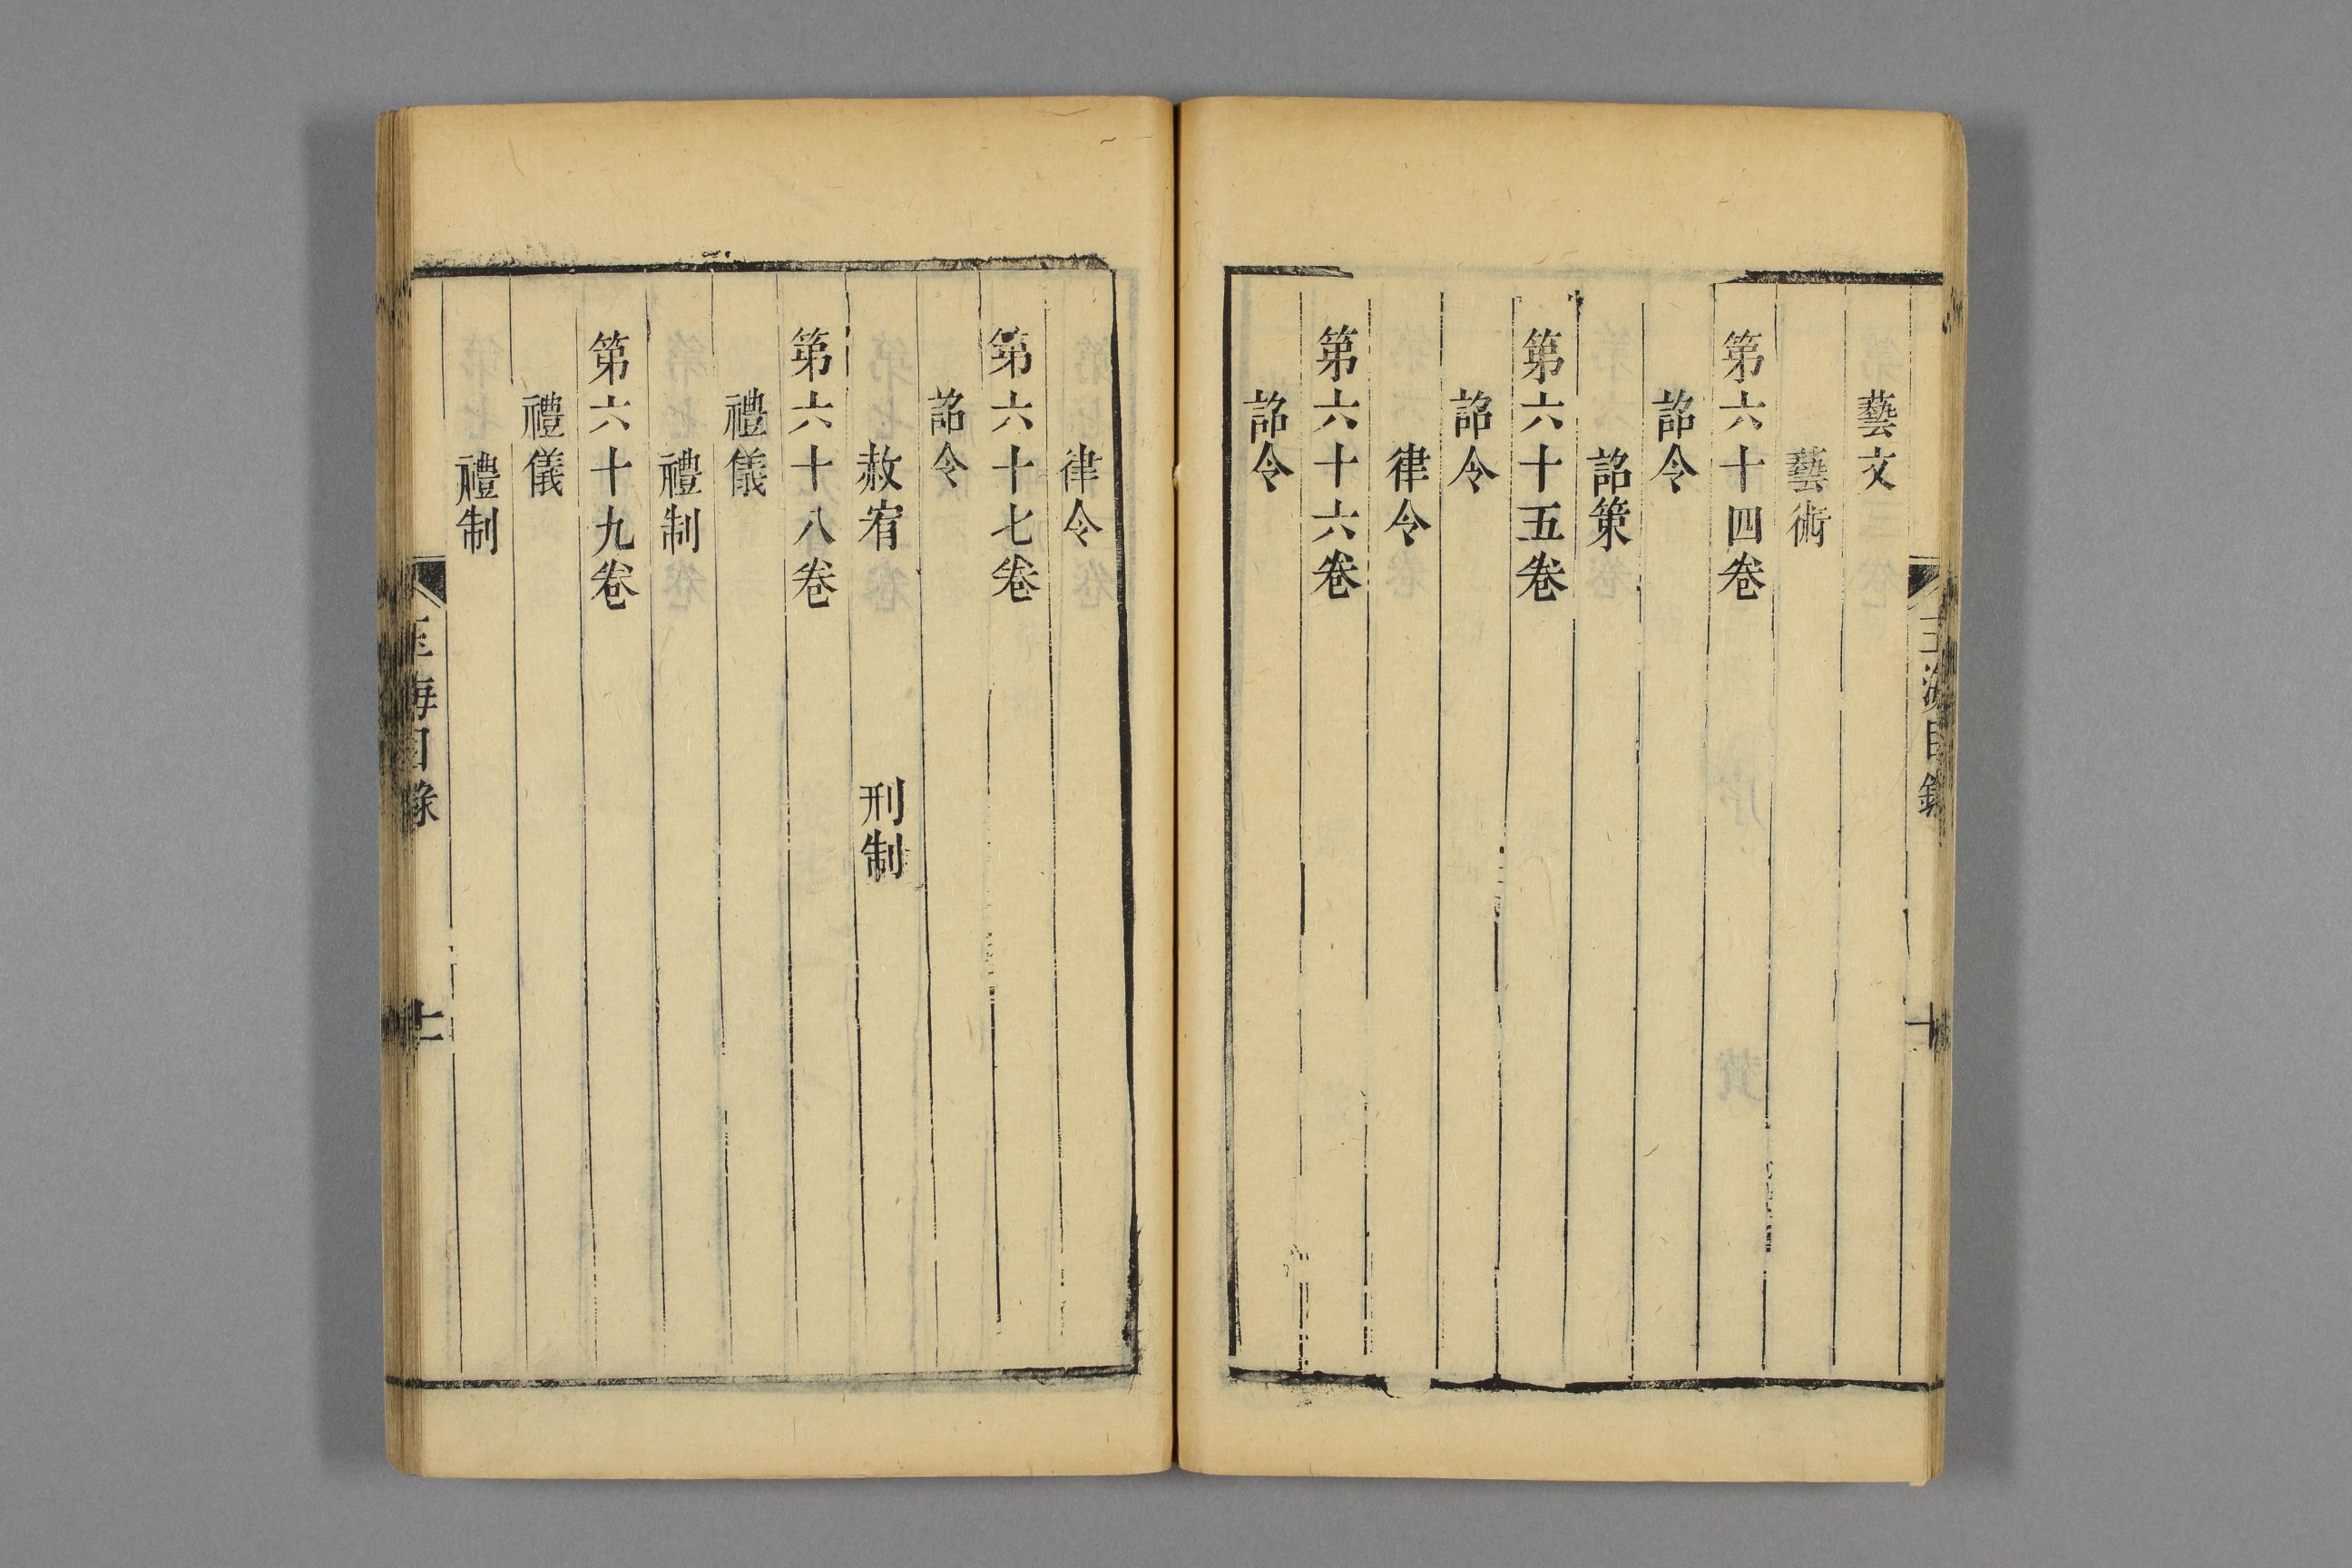 藝文
藝術
第六十四卷
詔令
詔策
第六十五卷
詔令
律令
第六十六卷
詔令
律令
第六十七卷
詔令
赦宥 刑制
第六十八卷
禮儀
禮制
第六十九卷
禮儀
禮制
玉海目錄